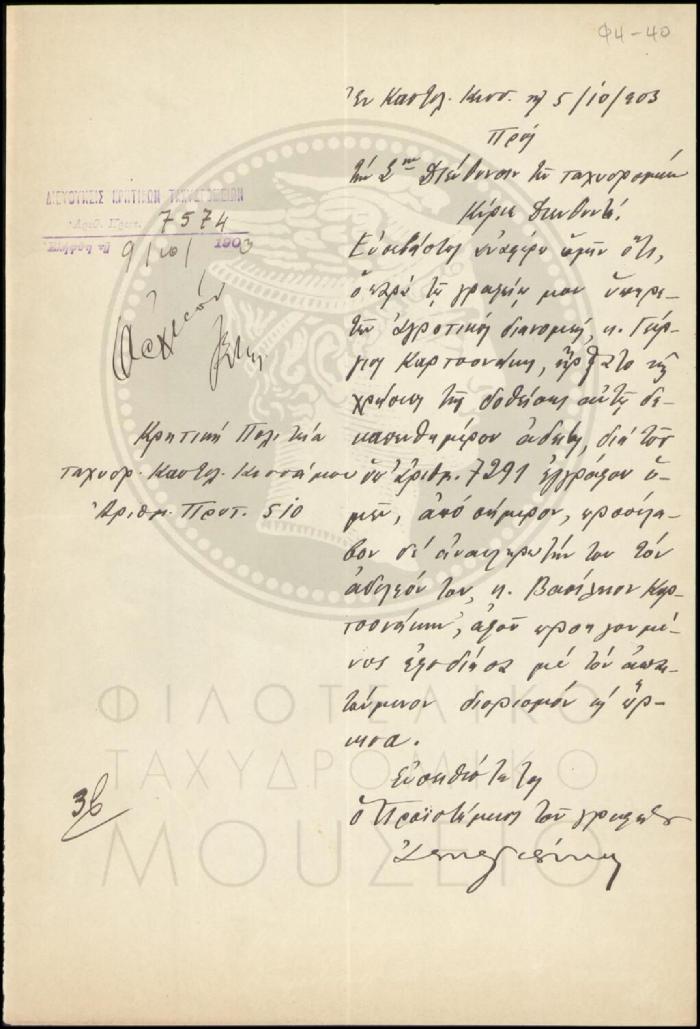 Φ4-40
Ἐν Καστελ. Κισσ. τῇ 5/10/903
Πρός
τὴν Σ. Διεύθυνσιν τῶν ταχυδρομείων
Κύριε Διευθυντά,
Εὐσεβάστως ἀναφέρω ὑμῖν ὅτι,
ὁ παρὰ τῷ γραφείῳ μου ὑπηρε-
τῶν ἀγροτικὸς διανομεύς, κ. Γεώρ-
γιος Καρτσονάκης, ἤρξατο τῆς
χρήσεως τῆς δοθείσης αὐτῷ δε-
καπενθημέρου ἀδείας, διὰ τοῦ
ὑπ' ἀριθμ. 7291 ἐγγράφου ὑ-
μῶν, ἀπὸ σήμερον, προσέλα-
βον δὲ ἀναπληρωτήν του τὸν
ἀδελφόν του, κ. Βασίλειον Καρ-
τσονάκην, ἀφοῦ προηγουμέ-
νως ἐφοδίασα μὲ τὸν ἀπαι-
τούμενον διορισμὸν καὶ ὥρ-
κισα.
Εὐπειθέστατος
Ὁ Προϊστάμενος τοῦ γραφείου
ΔΙΕΥΘΥΝΣΙΣ ΚΡΗΤΙΚΩΝ ΤΑΧΥΔΡΟΜΕΙΩΝ
Ἀριθ. Πρωτ. 7574
9/10/ 1903
Ἀρχεῖον
Κρητικὴ Πολιτεία
ταχυδρ. Καστελ. Κισσάμου
Ἀριθμ. Πρωτ. 510
36
ΦΙΛΟΤΕΛΙΚΟ
ΤΑΧΥΔΡΟΜΙΚΟ
ΜΟΥΣΕΙΟ